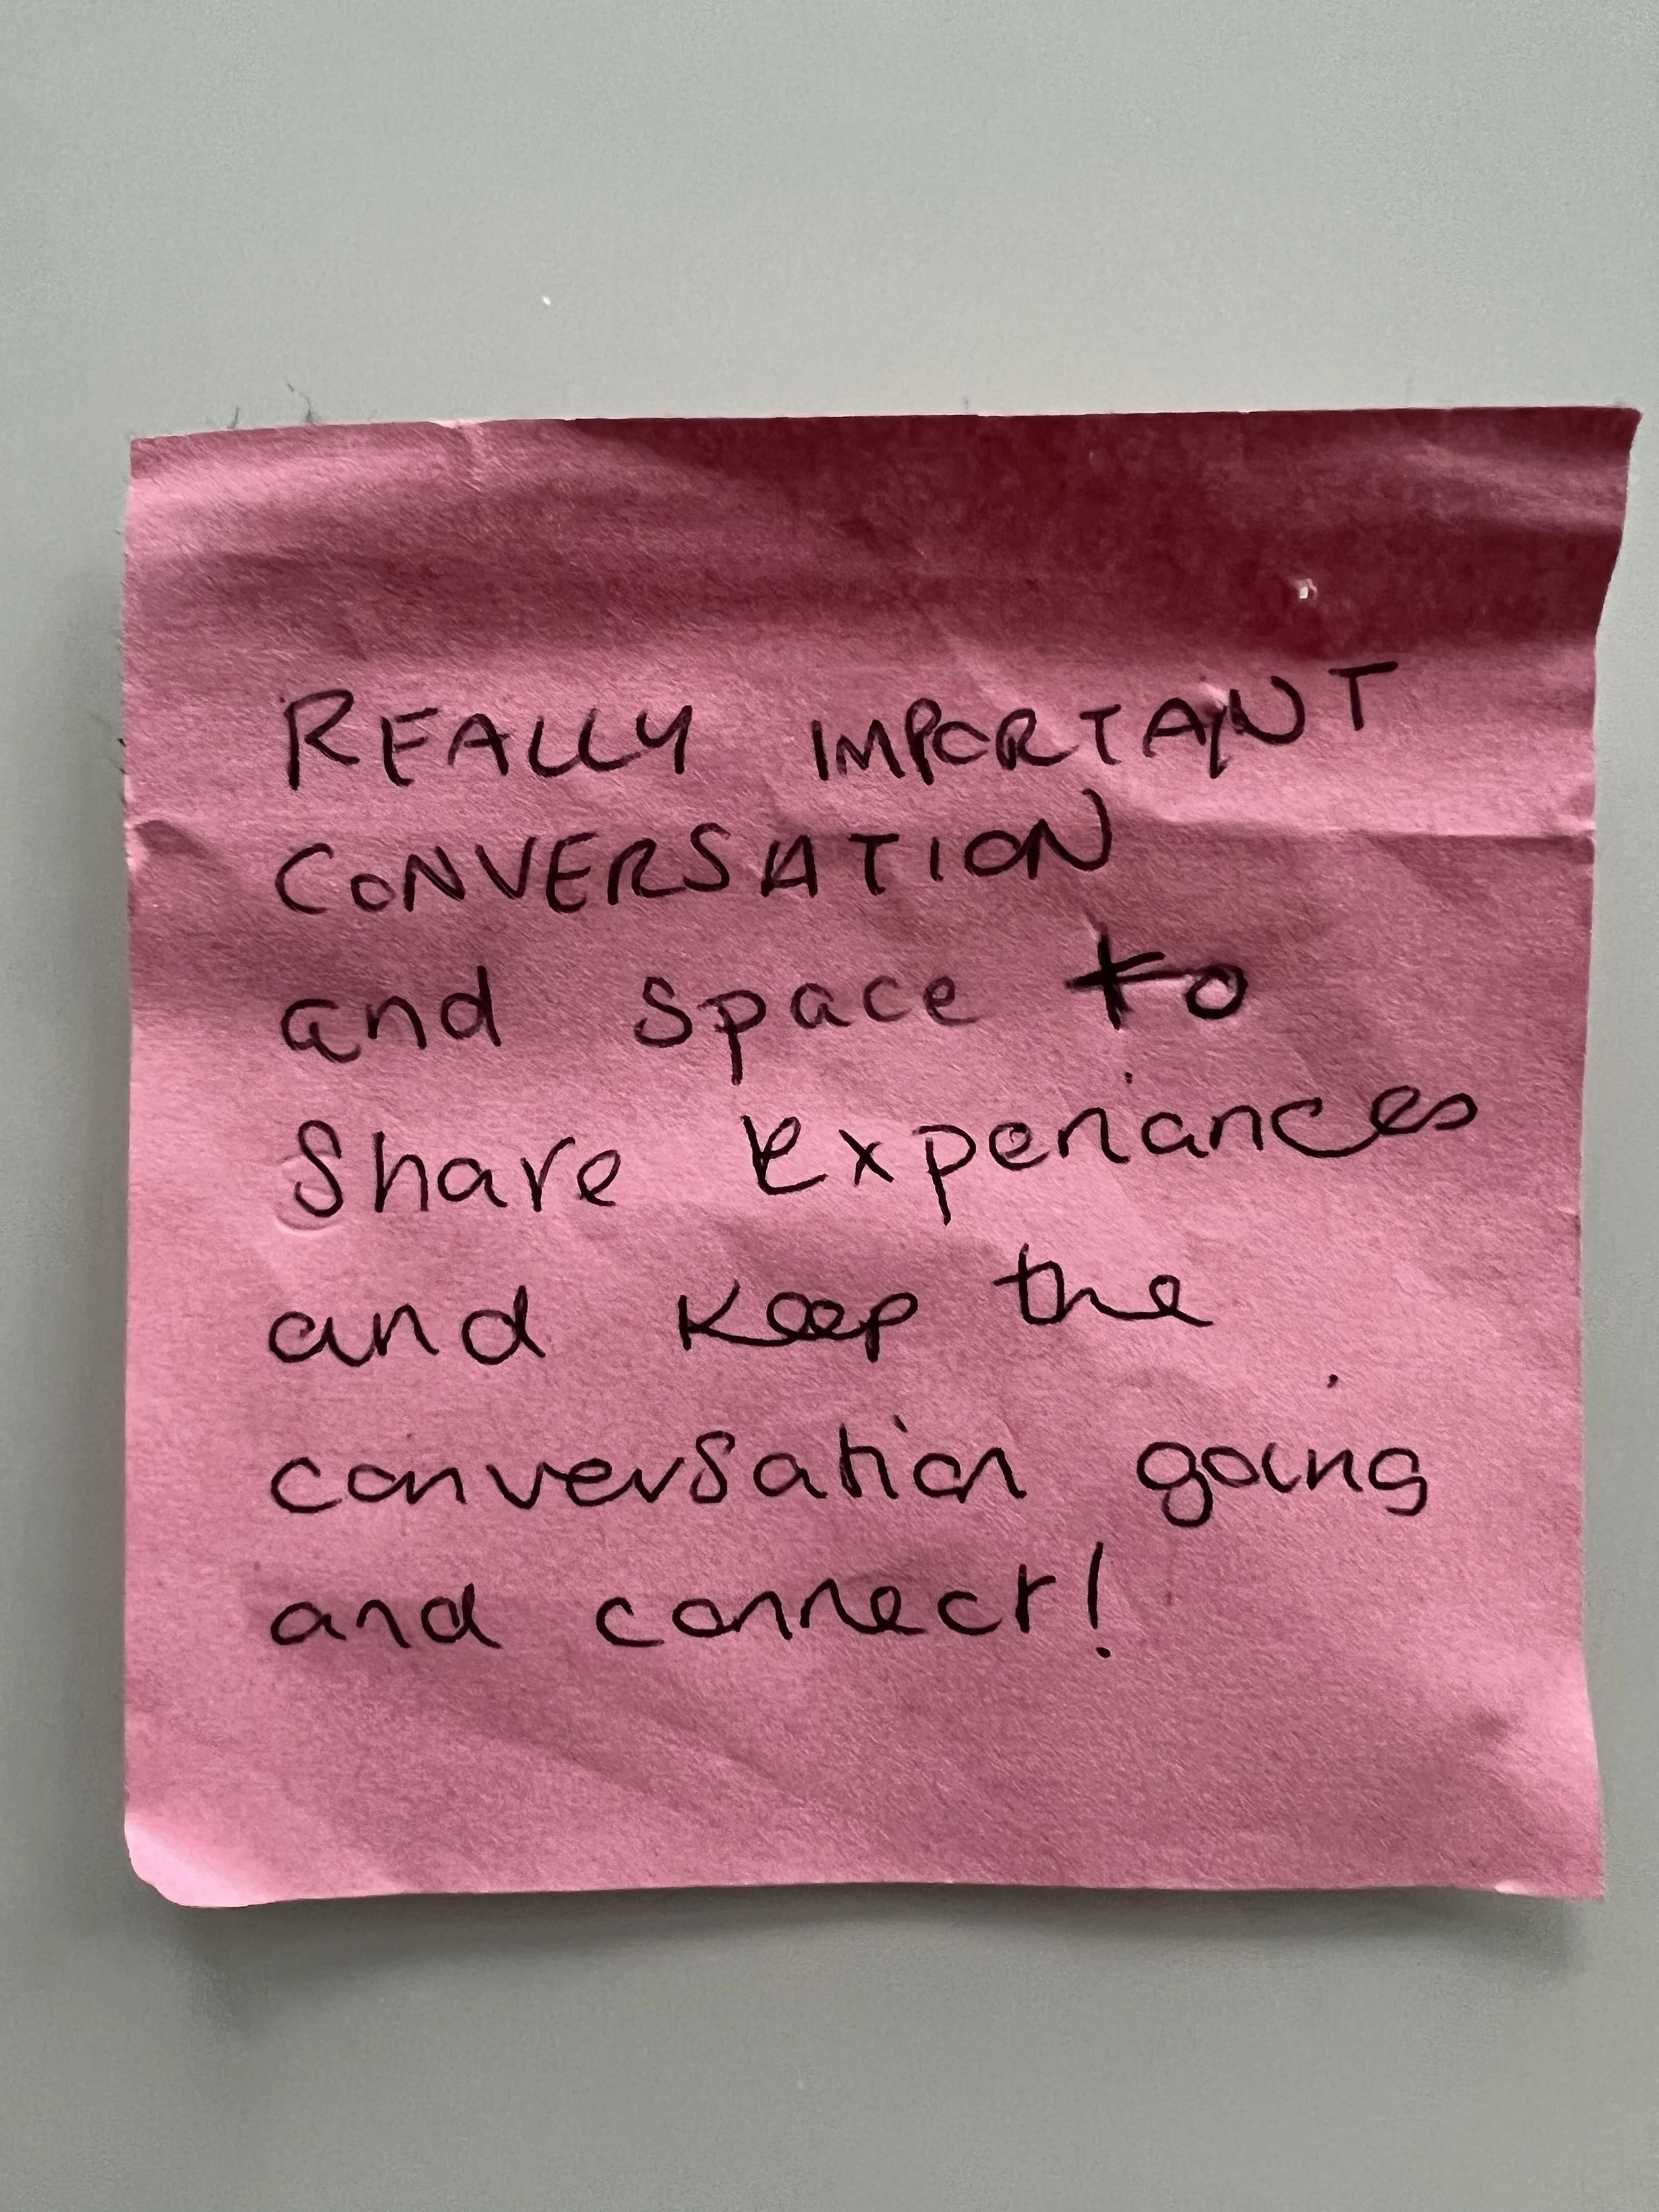 REALLY IMPORTANT
CONVERSATION
and space to
Share experiances
and keep the
conversation going
and connect!